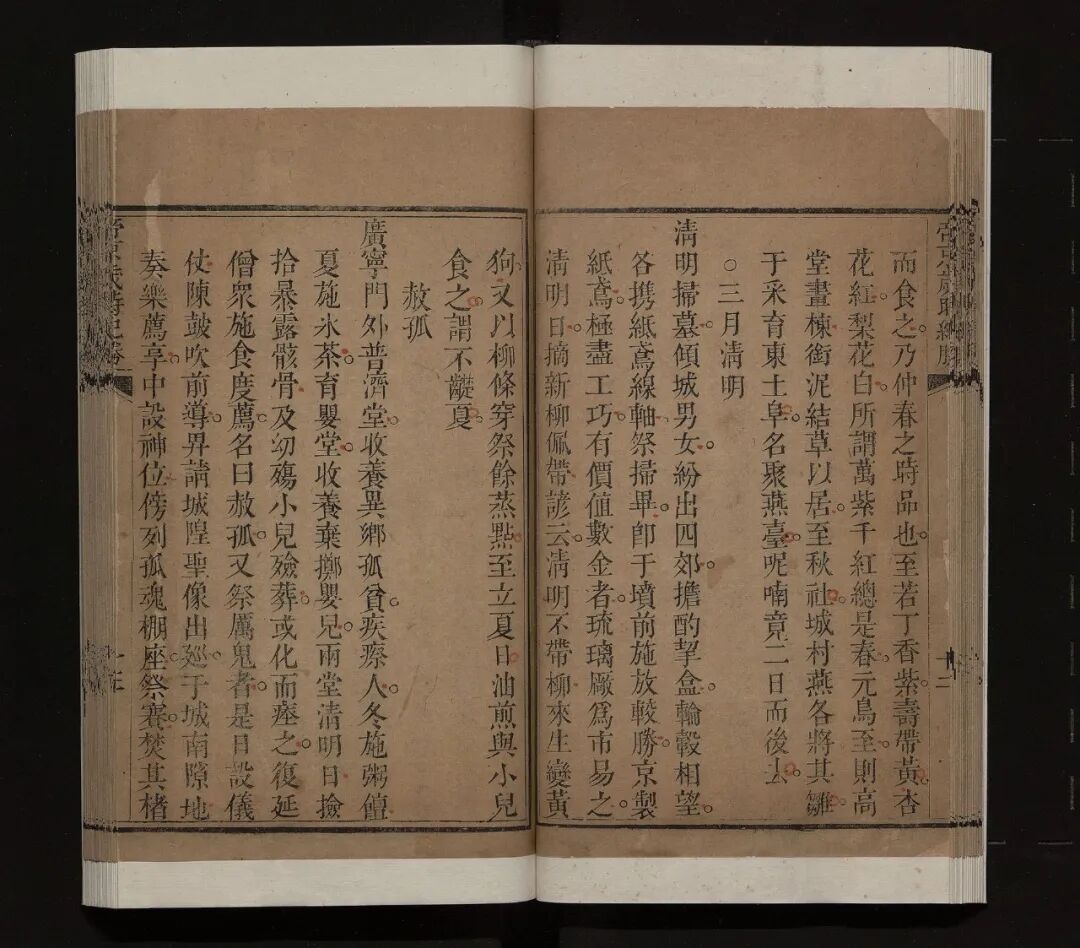 而食之乃仲春之時品也至若丁香紫壽帶黃杏
花紅梨花白所謂萬紫千紅總是春元鳥至則高
堂畫棟銜泥結草以居至秋社城村燕各將其雛
于采育東土阜名聚燕臺呢喃竟二日而後去
○三月清明
清明掃墓傾城男女紛出四郊擔酌挈盒輪轂相望
各攜紙鳶線軸祭掃畢卽于墳前施放較勝京製
紙鳶極盡工巧有價值數金者琉璃廠爲市易之
清明日摘新柳佩帶諺云清明不帶柳來生變黃
狗又以柳條穿祭餘蒸點至立夏日油煎與小兒
食之謂不齼夏
赦孤
廣寧門外普濟堂收養異鄉孤貧疾瘵人冬施粥饘
夏施氷茶育嬰堂收養棄擲嬰兒兩堂清明日撿
拾暴露骸骨及幼殤小兒殮葬或化而瘞之復延
僧衆施食度薦名曰赦孤又祭厲鬼者是日設儀
仗陳鼓吹前導舁請城隍聖像出廵于城南隙地
奏樂薦享中設神位傍列孤魂棚座祭賽焚其楮